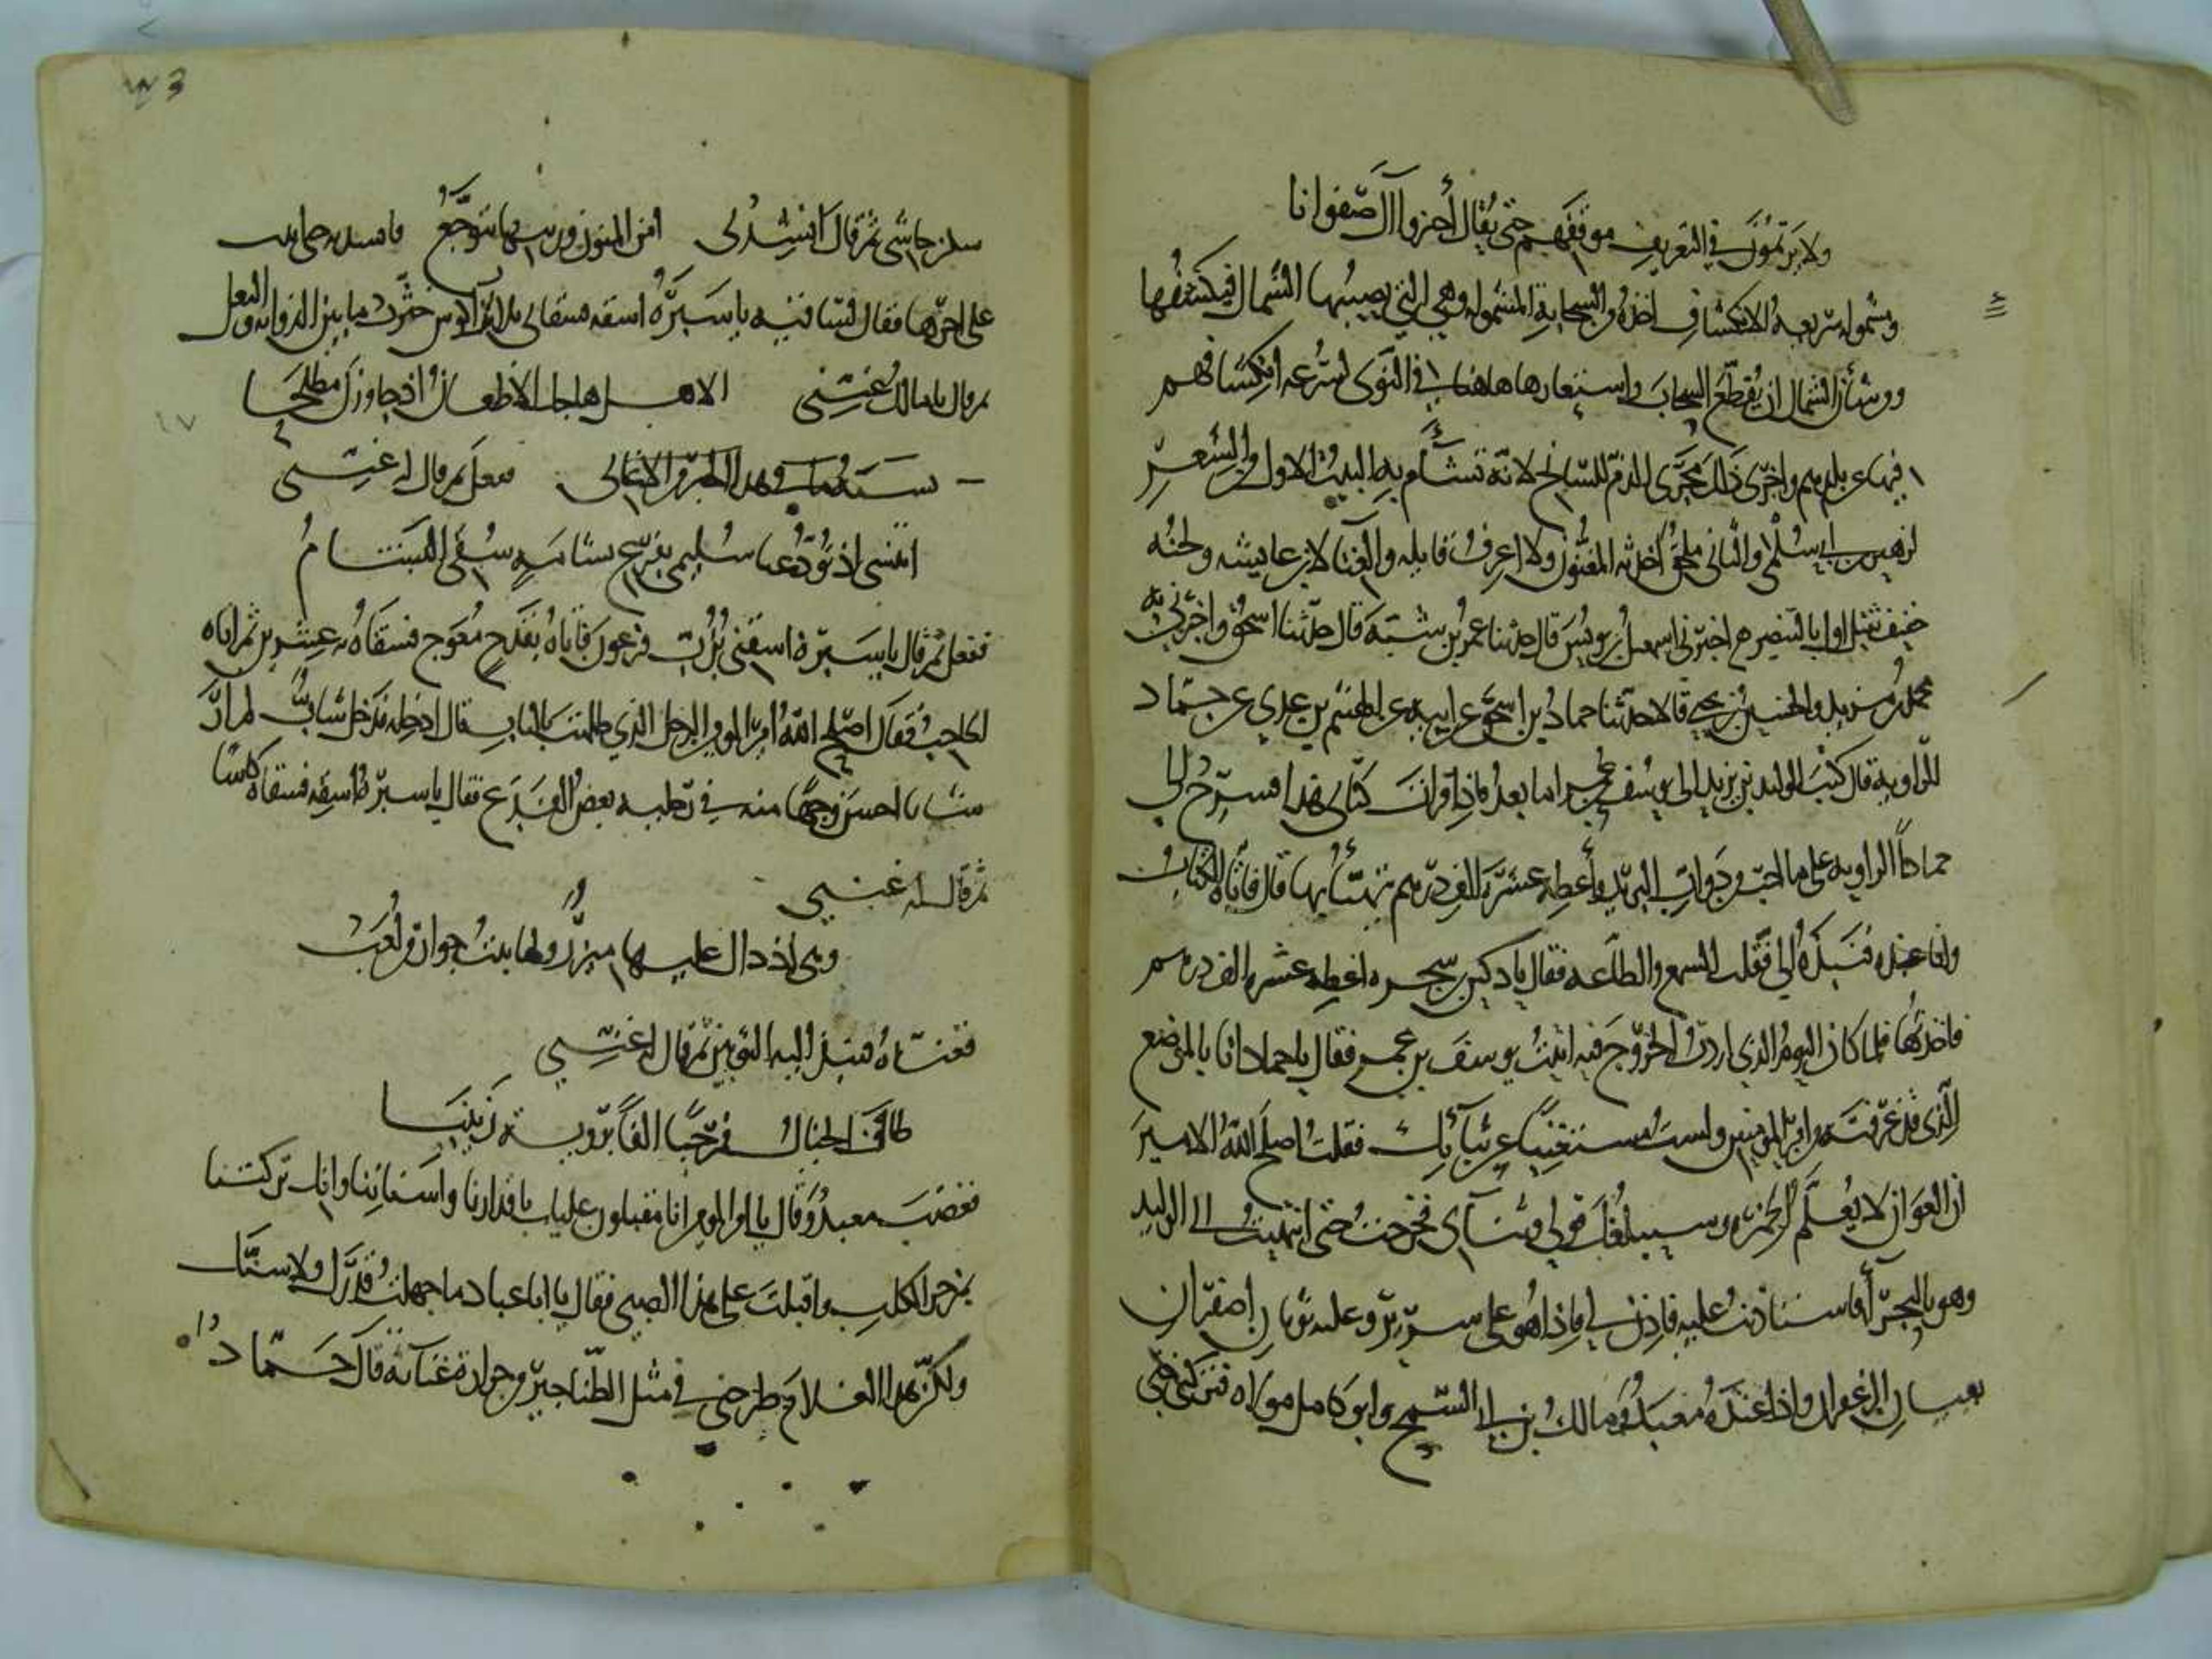 ولا يرتمون في التعريف موقفهم حتى يقال أجيزوا آل صفوانا
ومشموله سريعة الانكشاف أخذه من السحابة المشمولة وهي التي يصيبها الشمال فيكشفها
ومن شأن الشمال أن يقطع السحاب واستعارها هاهنا في النوى لسرعة انكشافهم
فيها عن بلدهم واجرى ذلك مجرى الذم للسانح لأنه تشأم به البيت الأول من الشعر
لزهير بن أبي سلمى والثاني ملحق أخذته المغنون ولا أعرف قايله والغنا لابن عايشه ولحنه
خفيف ثقيل اول بالبنصر اخبرني اسمعيل بن يونس قال حدثنا عمر بن شبة قال حدثنا اسحق واخبرني به
محمد بن مزيد والحسين بن يحيى قالا حدثنا حماد بن اسحق عن ابيه عن الهيثم بن عدي عن حماد
الراوية قال كتب الوليد بن يزيد الى يوسف بن عمر اما بعد فاذا قرات كتابي هذا فسرح الي
حماداً الراوية على ما احب من دواب البريد وأعطه عشرة الاف درهم يتهيأ بها قال فأتاه الكتاب
وانا عنده فنبذه الي فقلت السمع والطاعه فقال يا دكين بن سجره اعطه عشرة الف درهم
فاخذتها فلما كان اليوم الذي اردت الخروج فيه اتيت يوسف بن عمر فقال يا حماد انا بالموضع
الذي قد عرفته من امير المومنين ولست مستغنياً عن ثنآئك فقلت اصلح الله الامير
ان العوان لا تعلم الخمرة وسيبلغك قولي وثنآي فخرجت حتى انتهيت الى الوليد
وهو بالبخرآ فاستاذنت عليه فاذن لي فاذا هو على سرير وعليه ثوبان اصفران
الزعفران واذا عنده معبد ومالك بن ابي السمح وابو كامل مولاه فتركني حتى
سكن جاشي ثم قال انشدني أمن المنون وريبها تتوجع فانشدته حتى اتيت
على اخرها فقال لساقيه يا سبرة اسقه فسقاني ثلاثة اكوس خثرت ما بين الذوابه والنعل
ثم قال يا مالك غنني الا هل هاجك الاظعان اذ جاوزن مطلحا
ففعل ثم قال له غنني
اتنسى اذ تودعنا سليمى بفرع بشامةٍ سقي البشام
ففعل ثم قال يا سبرة اسقني بزب فرعون فاتاه بقدح معوج فسقاه به عشرين ثم اتاه
الحاجب فقال اصلح الله امير المومنين الرجل الذي طلبت بالباب قال ادخله فدخل شاب لم ار
شابا احسن وجها منه في رجليه بعض الفدع فقال يا سبرة اسقه فسقاه كاسا
ثم قال له غنني
وهي اذ ذاك عليها ميزر ولها بيت جوار من لعب
فغناه فنبذ اليه الثوبين ثم قال له غنني
طاف الخيال فمرحباً الفاً بروية زينبا
فغضب معبد وقال يا امير المومنين انا مقبلون عليك باقدارنا واسناننا وانك تركتنا
بمزجر الكلب واقبلت على هذا الصبي فقال يا ابا عباد ما جهلت قدرك ولا سنك
ولكن هذا الغلام طرحني في مثل الطناجير من حرارة غنآئه قال حماد